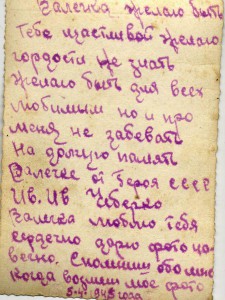 Валечка желаю быть
Тебе щастливой желаю
гордости не знать
желаю быть для всех
любимым но и про
меня не забевать
На долгую память
Валечке от Героя СССР
Ив. Ив
Валечка люблю тебя
сердечно дарю фото на
вечно. Спомниш обо мне
когда возмеш мое фото
5-4-1945 года